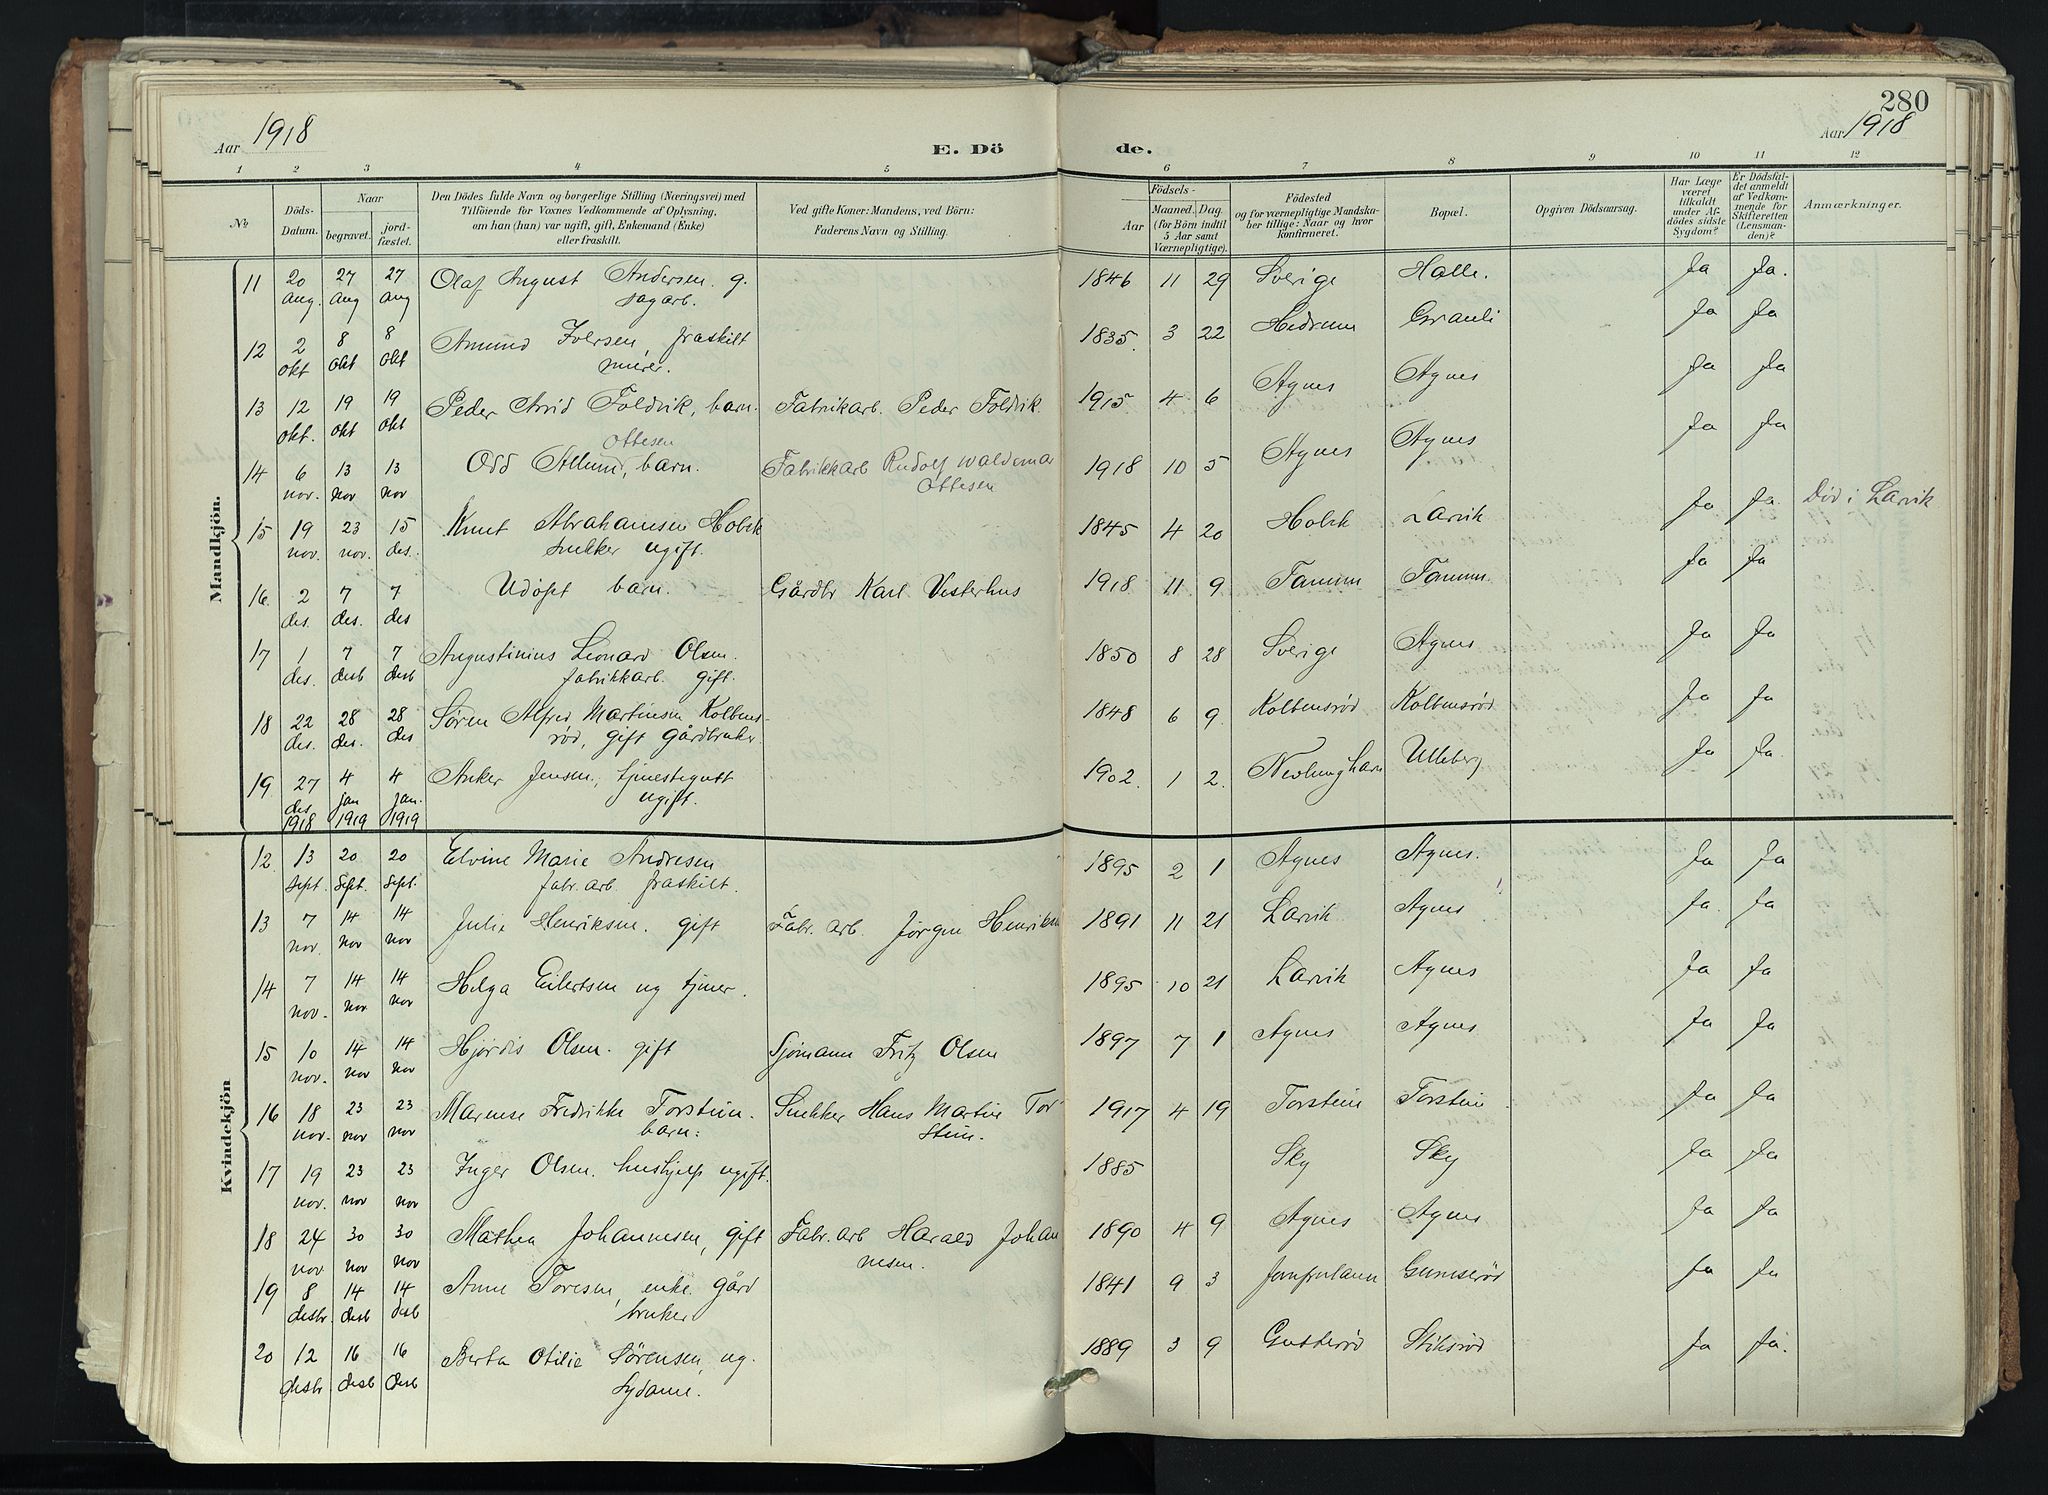 280
Aar 1918
E. Dö
de.
Aar 1918
1 2 3 4 5 6 7 8 9 10 11 12
No
Döds-Datum.
Naar
begravet.
jord-fæstet.
Den Dödes fulde Navn og borgerlige Stilling (Næringsvei) med
Tilföiende for Voxnes Vedkommende af Oplysning,
om han (hun) var ugift, gift, Enkemand (Enke)
eller fraskilt.
Ved gifte Koner: Mandens, ved Börn:
Faderens Navn og Stilling.
Födsels-
Aar
Maaned. Dag.
(for Börn indtil
5 Aar samt
Værnepligtige).
Födested
og for værnepligtige Mandska-
ber tillige: Naar og hvor
konfirmeret.
Bopæl.
Opgiven Dödsaarsag.
Har Læge
været
tilkaldt
under Af-
dödes sidste
Sygdom?
Er Dödsfal-
det anmeldt
af Vedkom-
mende for
Skifteretten
(Lensman-
den)?
Anmærkninger.
Mandkjön.
11 20 aug. 27 aug 27 aug Olaf August Andersen. g. 1846 11 29 Sverige Halle. Ja Ja.
sagarb.
12 2 okt 8 okt 8 okt Amund Iversen, fraskilt 1835. 3 22 Hedrum Granli Ja Ja
murer.
13 12 okt. 19 okt 19 okt Peder Arvid Foldvik, barn. Fabrikarb. Peder Foldvik. 1915 4 6 Agnes Agnes Ja Ja
Ottesen
14 6 nov. 13 nov 13 nov Odd Allum, barn. Fabrikkarb Rudolf Waldemar 1918 10 5 Agnes Agnes Ja Ja
Ottesen
15 19 nov. 23 nov. 15 des. Knut Abrahamsen Holsk 1845 4 20 Holsk Larvik Ja Ja Död i Larvik
Snekker ugift.
16 2 des. 7 des. 7 des Udöpt barn. Gårdbr Karl Vesterhus 1918. 11 9 Tanum Tanum. Ja Ja
17 1 des. 7 desb 7 desb Augustinius Leonard Olsen. 1850 8 28 Sverige Agnes Ja Ja
fabrikkarb. gift.
18 22 des. 28 des. 28 des Søren Alfred Martinsen Kolbens- 1848 6 9. Kolbensrød Kolbensrød Ja Ja
rød, gift gårdbruker.
19 27 des. 1918 4 jan 1919 4 jan. 1919 Anker Jensen, tjenestegutt 1902. 1 2. Nevlunghavn Ulleberg Ja Ja.
ugift.
Kvindekjön
12 13 sept. 20 sept. 20 sept. Elvine Marie Andresen 1895 2 1 Agnes Agnes. Ja Ja
fabr. arb. fraskilt.
13 7 nov. 14 nov 14 nov Julie Henriksen. gift Fabr. arb. Jørgen Henriksen 1891 11 21 Larvik Agnes Ja. Ja
14 7 nov. 14 nov 14 nov Helga Eilertsen ug tjener. 1895 10 21 Larvik Agnes Ja Ja
15 10 nov. 14 nov 14 nov Hjørdis Olsen. gift Sjømann Fritz Olsen 1897 7 1 Agnes Agnes Ja Ja
16 18 nov. 23 nov 23 nov Fredrikke Torstein. Snekker Hans Martin Tor 1917 4 19 Torstein Torstein Ja Ja
barn. stein.
17 19 nov. 23 nov 23 nov Inger Olsen. hushjelp ugift. 1885 Sky Sky Ja Ja
18 24 nov 30 nov 30 nov Mathea Johannesen, gift Fabr. arb Harald Johan 1890 4 9 Agnes Agnes Ja Ja
nesen.
19 8 desbr. 14 desb 14 desb Anne Toresen, enke. gård 1841 9 3 Jomfruland Gumserød Ja Ja
bruker
20 12 desbr. 16 desb 16 desb Berta Otilie Sørensen, ug. 1889 3 9 Gusserød Stiksrød Ja Ja.
Sydame.